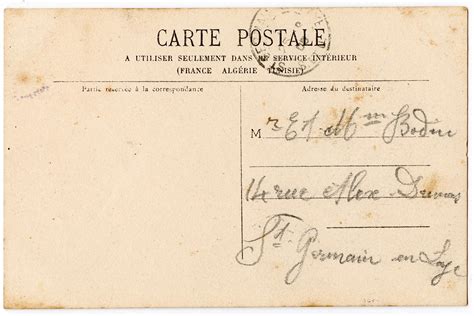 CARTE POSTALE
A UTILISER SEULEMENT DANS LE SERVICE INTÉRIEUR
(FRANCE ALGÉRIE TUNISIE)
Partie réservée à la correspondance
Adresse du destinataire
M r Et Mme Bodin
14 rue Alex Dumas
St Germain en Laye